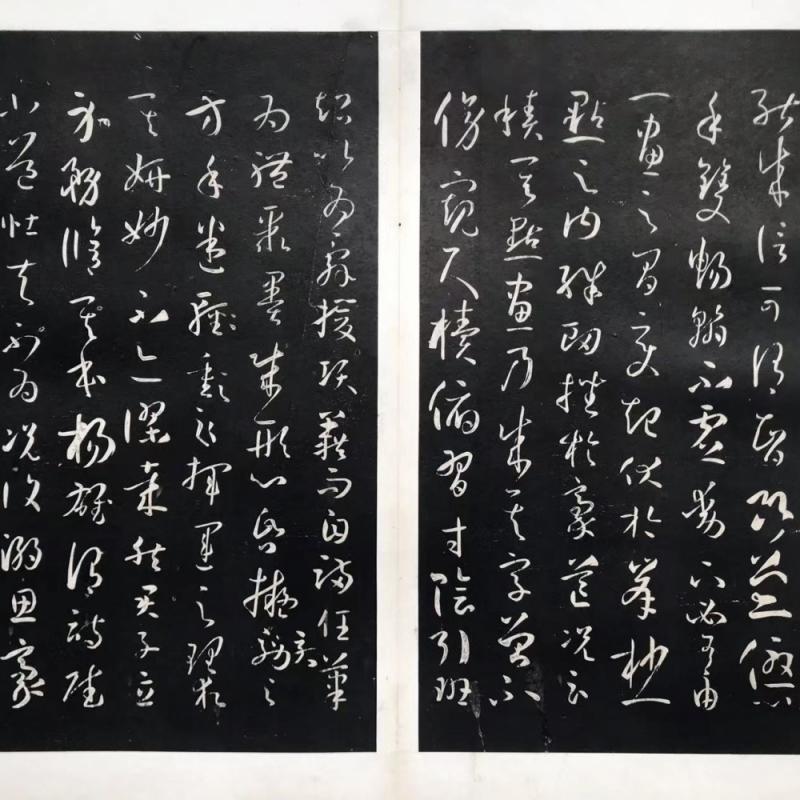 能成信可謂智巧兼優心
手雙暢翰不虛動下必有由
一畫之間變起伏於峯杪一
點之內殊衄挫於豪芒況云
積其點畫乃成其字曾不
傍窺尺牘俯習寸陰引班
超以為辭援項籍而自滿任筆
為體聚墨成形心昏擬效之
方手迷揮運之理求
其妍妙不亦謬哉然君子立
身務脩其本楊雄謂詩賦
小道壯夫不為況復溺思豪